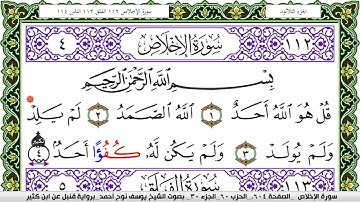 الجزء الثلاثون
سورة الإخلاص ١١٢ الفلق ١١٣ الناس ١١٤
١١٢ سُورَةُ الإِخْلَاصِ ٤
بِسْمِ اللَّهِ الرَّحْمَٰنِ الرَّحِيمِ
قُلْ هُوَ اللَّهُ أَحَدٌ ١ اللَّهُ الصَّمَدُ ٢ لَمْ يَلِدْ
وَلَمْ يُولَدْ ٣ وَلَمْ يَكُن لَّهُ كُفُؤًا أَحَدٌ ٤
١١٣ سُورَةُ الفَلَقِ ٥
سورة الإخلاص الصفحة ٦٠٤ الحزب ٦٠ الجزء ٣٠ بصوت الشيخ يوسف نوح أحمد برواية قنبل عن ابن كثير